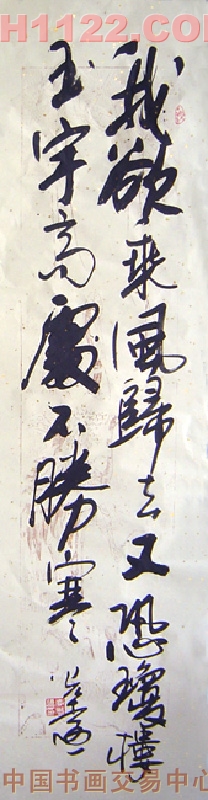 H1122.COM
我欲乘風歸去又恐瓊樓
玉宇高處不勝寒
中国书画交易中心